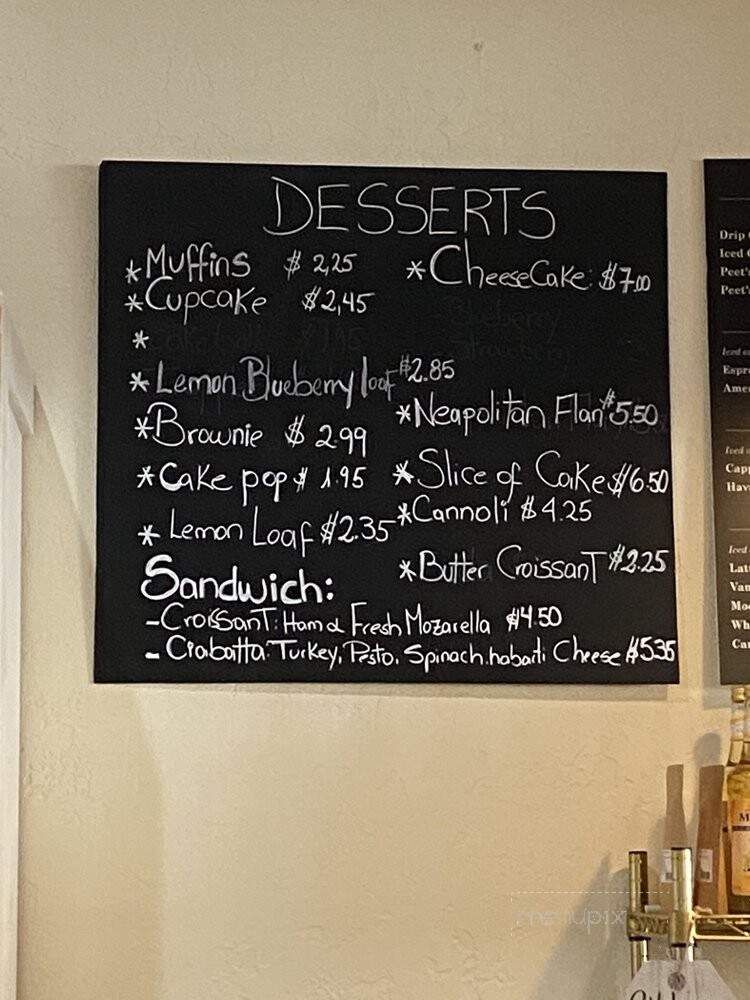 DESSERTS
*Muffins $ 2,25
*Cupcake $2,45
*
*Lemon Blueberry loaf $2.85
*Brownie $ 2.99
*Cake pop $ 1.95
*Lemon Loaf $2.35
*CheeseCake: $7.00
Blueberry
Strawberry
*Neapolitan Flan $5.50
*Slice of Cake $6.50
*Cannoli $4.25
*Butter CroissanT $2.25
Sandwich:
-CroissanT: Ham & Fresh Mozarella $4.50
- Ciabatta: Turkey, Pesto, Spinach.habarti Cheese $5.35
Drip
Iced
Peet's
Peet's
Iced
Espre
Ame
Iced
Capp
Hav
Iced
Latt
Van
Moc
Wh
Car
menupix